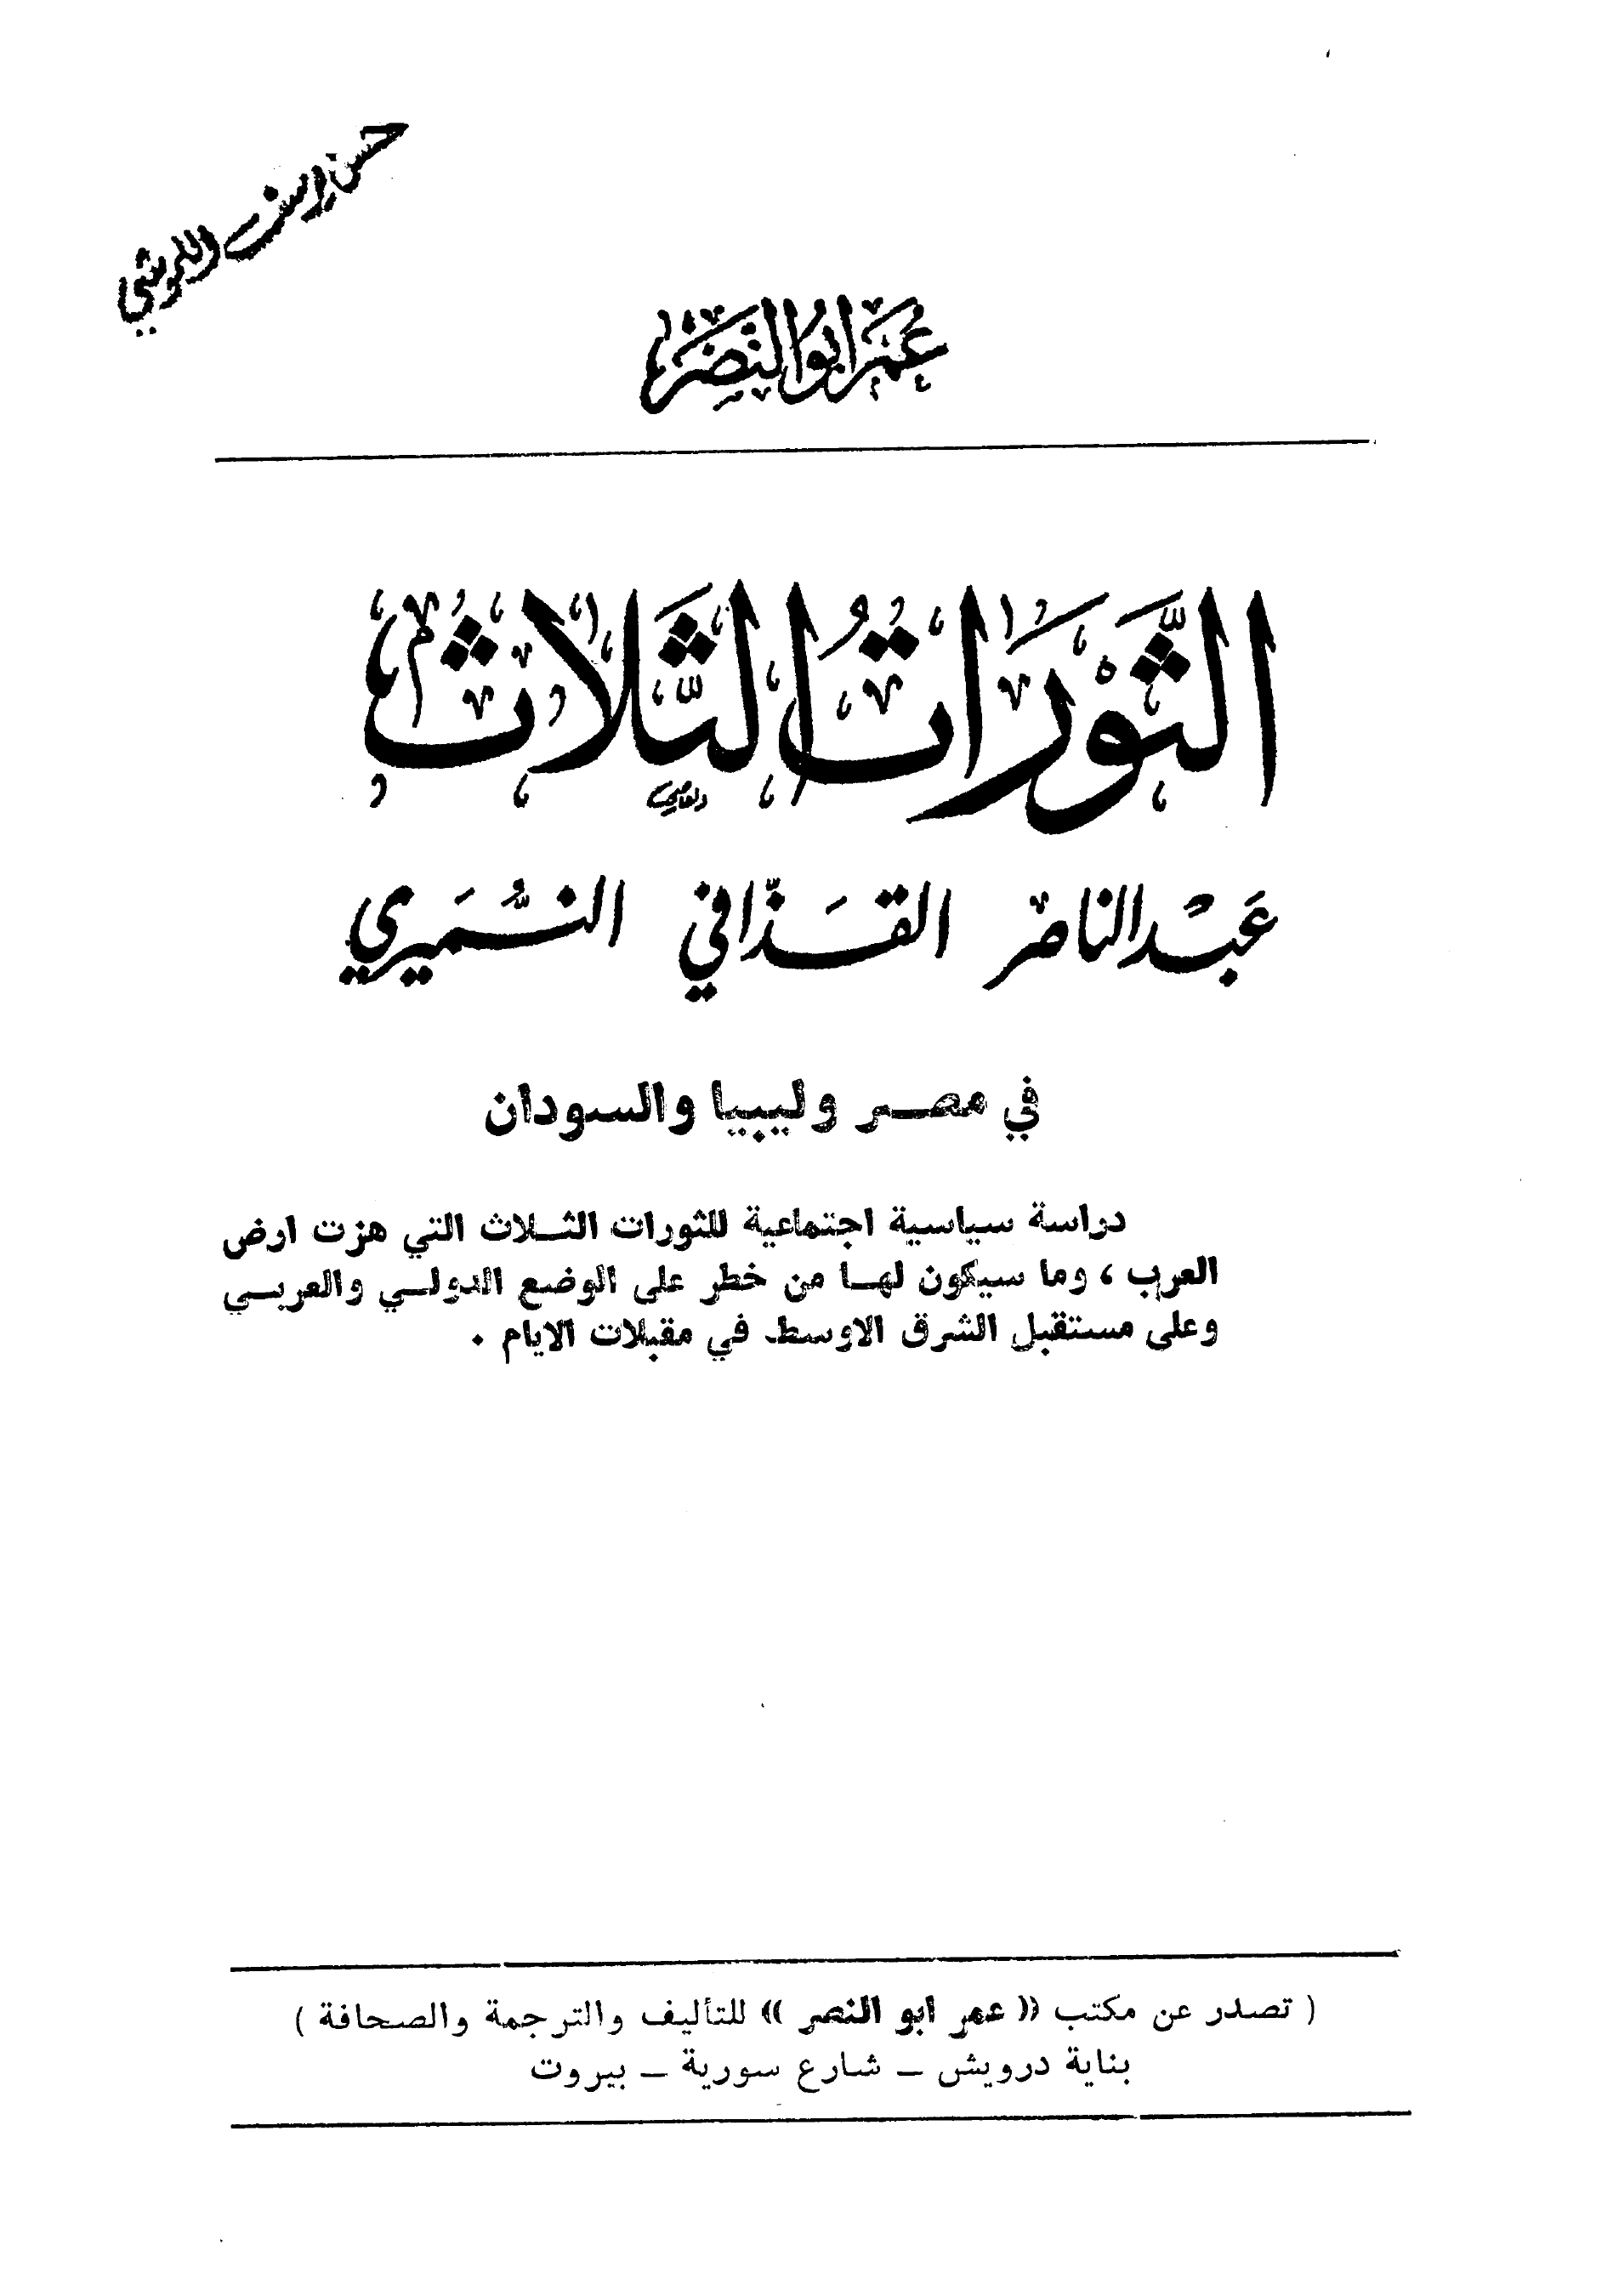 حسن
عمر ابو النصر
الثورات الثلاث
عبد الناصر القذافي النميري
في مصر وليبيا والسودان
دراسة سياسية اجتماعية للثورات الثلاث التي هزت ارض
العرب ، وما سيكون لها من خطر على الوضع الدولي والعربي
وعلى مستقبل الشرق الاوسط في مقبلات الايام .
( تصدر عن مكتب « عمر ابو النصر » للتأليف والترجمة والصحافة )
بناية درويش – شارع سورية – بيروت